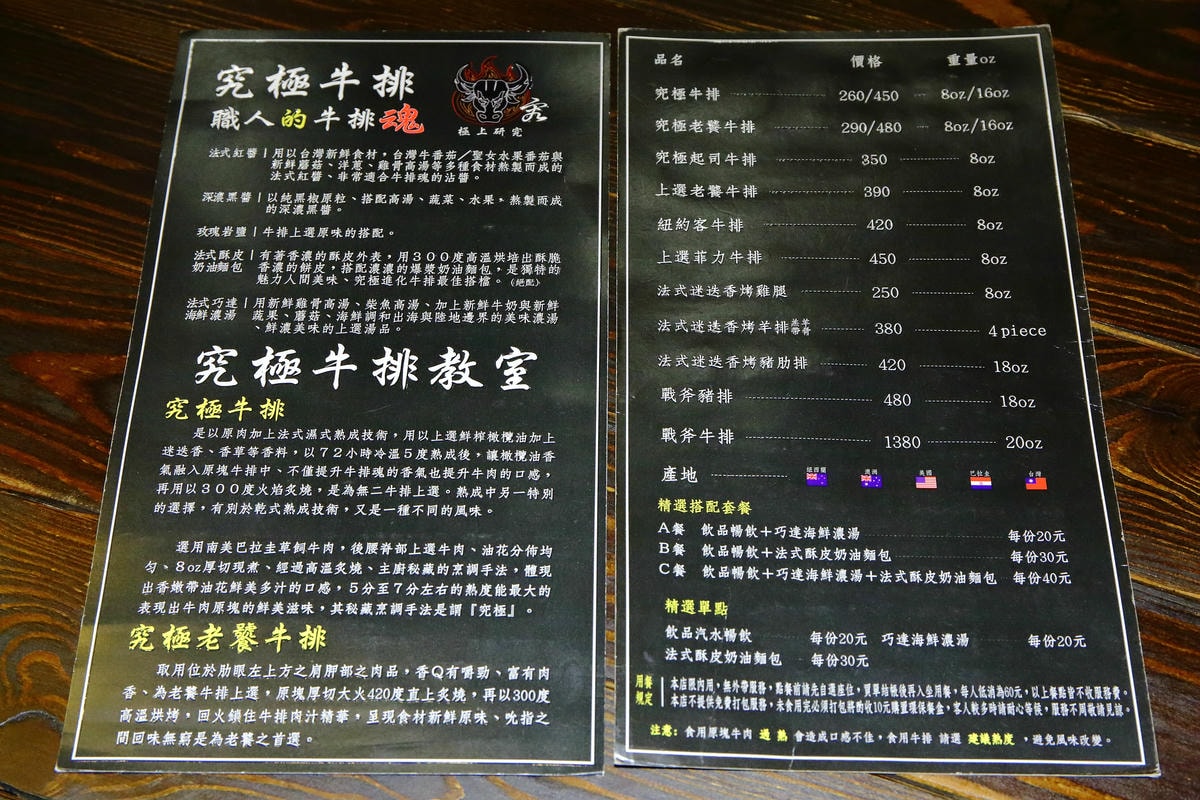 究極牛排
職人的牛排魂
極上研究
法式紅醬|用以台灣新鮮食材,台灣牛番茄/聖女水果番茄與
新鮮蘑菇、洋蔥、雞骨高湯等多種食材熬製而成的
法式紅醬、非常適合牛排魂的沾醬。
深濃黑醬|以純黑椒原粒、搭配高湯、蔬菜、水果,熬製而成
的深濃黑醬。
玫瑰岩鹽|牛排上選原味的搭配。
法式酥皮|有著香濃的酥皮外表,用300度高溫烘培出酥脆
奶油麵包 香濃的餅皮,搭配濃濃的爆漿奶油麵包,是獨特的
魅力人間美味、究極進化牛排最佳搭檔。(絕配)
法式巧達|用新鮮雞骨高湯、柴魚高湯、加上新鮮牛奶與新鮮
海鮮濃湯 蔬果、蘑菇、海鮮調和出海與陸地邊界的美味濃湯
、鮮濃美味的上選湯品。
究極牛排教室
究極牛排
是以原肉加上法式濕式熟成技術,用以上選鮮榨橄欖油加上
迷迭香、香草等香料,以72小時冷溫5度熟成後,讓橄欖油香
氣融入原塊牛排中、不僅提升牛排魂的香氣也提升牛肉的口感,
再用以300度火焰炙燒,是為無二牛排上選。熟成中另一特別
的選擇,有別於乾式熟成技術,又是一種不同的風味。
選用南美巴拉圭草飼牛肉,後腰脊部上選牛肉、油花分佈均
勻、8oz厚切現煮、經過高溫炙燒、主廚秘藏的烹調手法,體現
出香嫩帶油花鮮美多汁的口感,5分至7分左右的熟度能最大的
表現出牛肉原塊的鮮美滋味,其秘藏烹調手法是謂『究極』。
究極老饕牛排
取用位於肋眼左上方之肩胛部之肉品,香Q有嚼勁、富有肉
香、為老饕牛排上選,原塊厚切大火420度直上炙燒,再以300度
高溫烘烤,回火鎖住牛排肉汁精華,呈現食材新鮮原味、吮指之
間回味無窮是為老饕之首選。
品名 價格 重量oz
究極牛排 260/450 8oz/16oz
究極老饕牛排 290/480 8oz/16oz
究極起司牛排 350 8oz
上選老饕牛排 390 8oz
紐約客牛排 420 8oz
上選菲力牛排 450 8oz
法式迷迭香烤雞腿 250 8oz
法式迷迭香烤羊排 380 4piece
法式迷迭香烤豬肋排 420 18oz
戰斧豬排 480 18oz
戰斧牛排 1380 20oz
產地 紐西蘭 澳洲 美國 巴拉圭 台灣
精選搭配套餐
A餐 飲品暢飲+巧達海鮮濃湯 每份20元
B餐 飲品暢飲+法式酥皮奶油麵包 每份30元
C餐 飲品暢飲+巧達海鮮濃湯+法式酥皮奶油麵包 每份40元
精選單點
飲品汽水暢飲 每份20元 巧達海鮮濃湯 每份20元
法式酥皮奶油麵包 每份30元
用餐規定
本店限內用,無外帶服務,點餐前請先自選座位,買單結帳後再入坐用餐,每人低消為60元,以上餐點皆不收服務費。
本店不提供免費打包服務,未食用完必須打包將酌收10元購置環保餐盒,客人較多時請耐心等候,服務不周敬請見諒。
注意:食用原塊牛肉 過熟 會造成口感不佳,食用牛排 請選 建議熟度 ,避免風味改變。